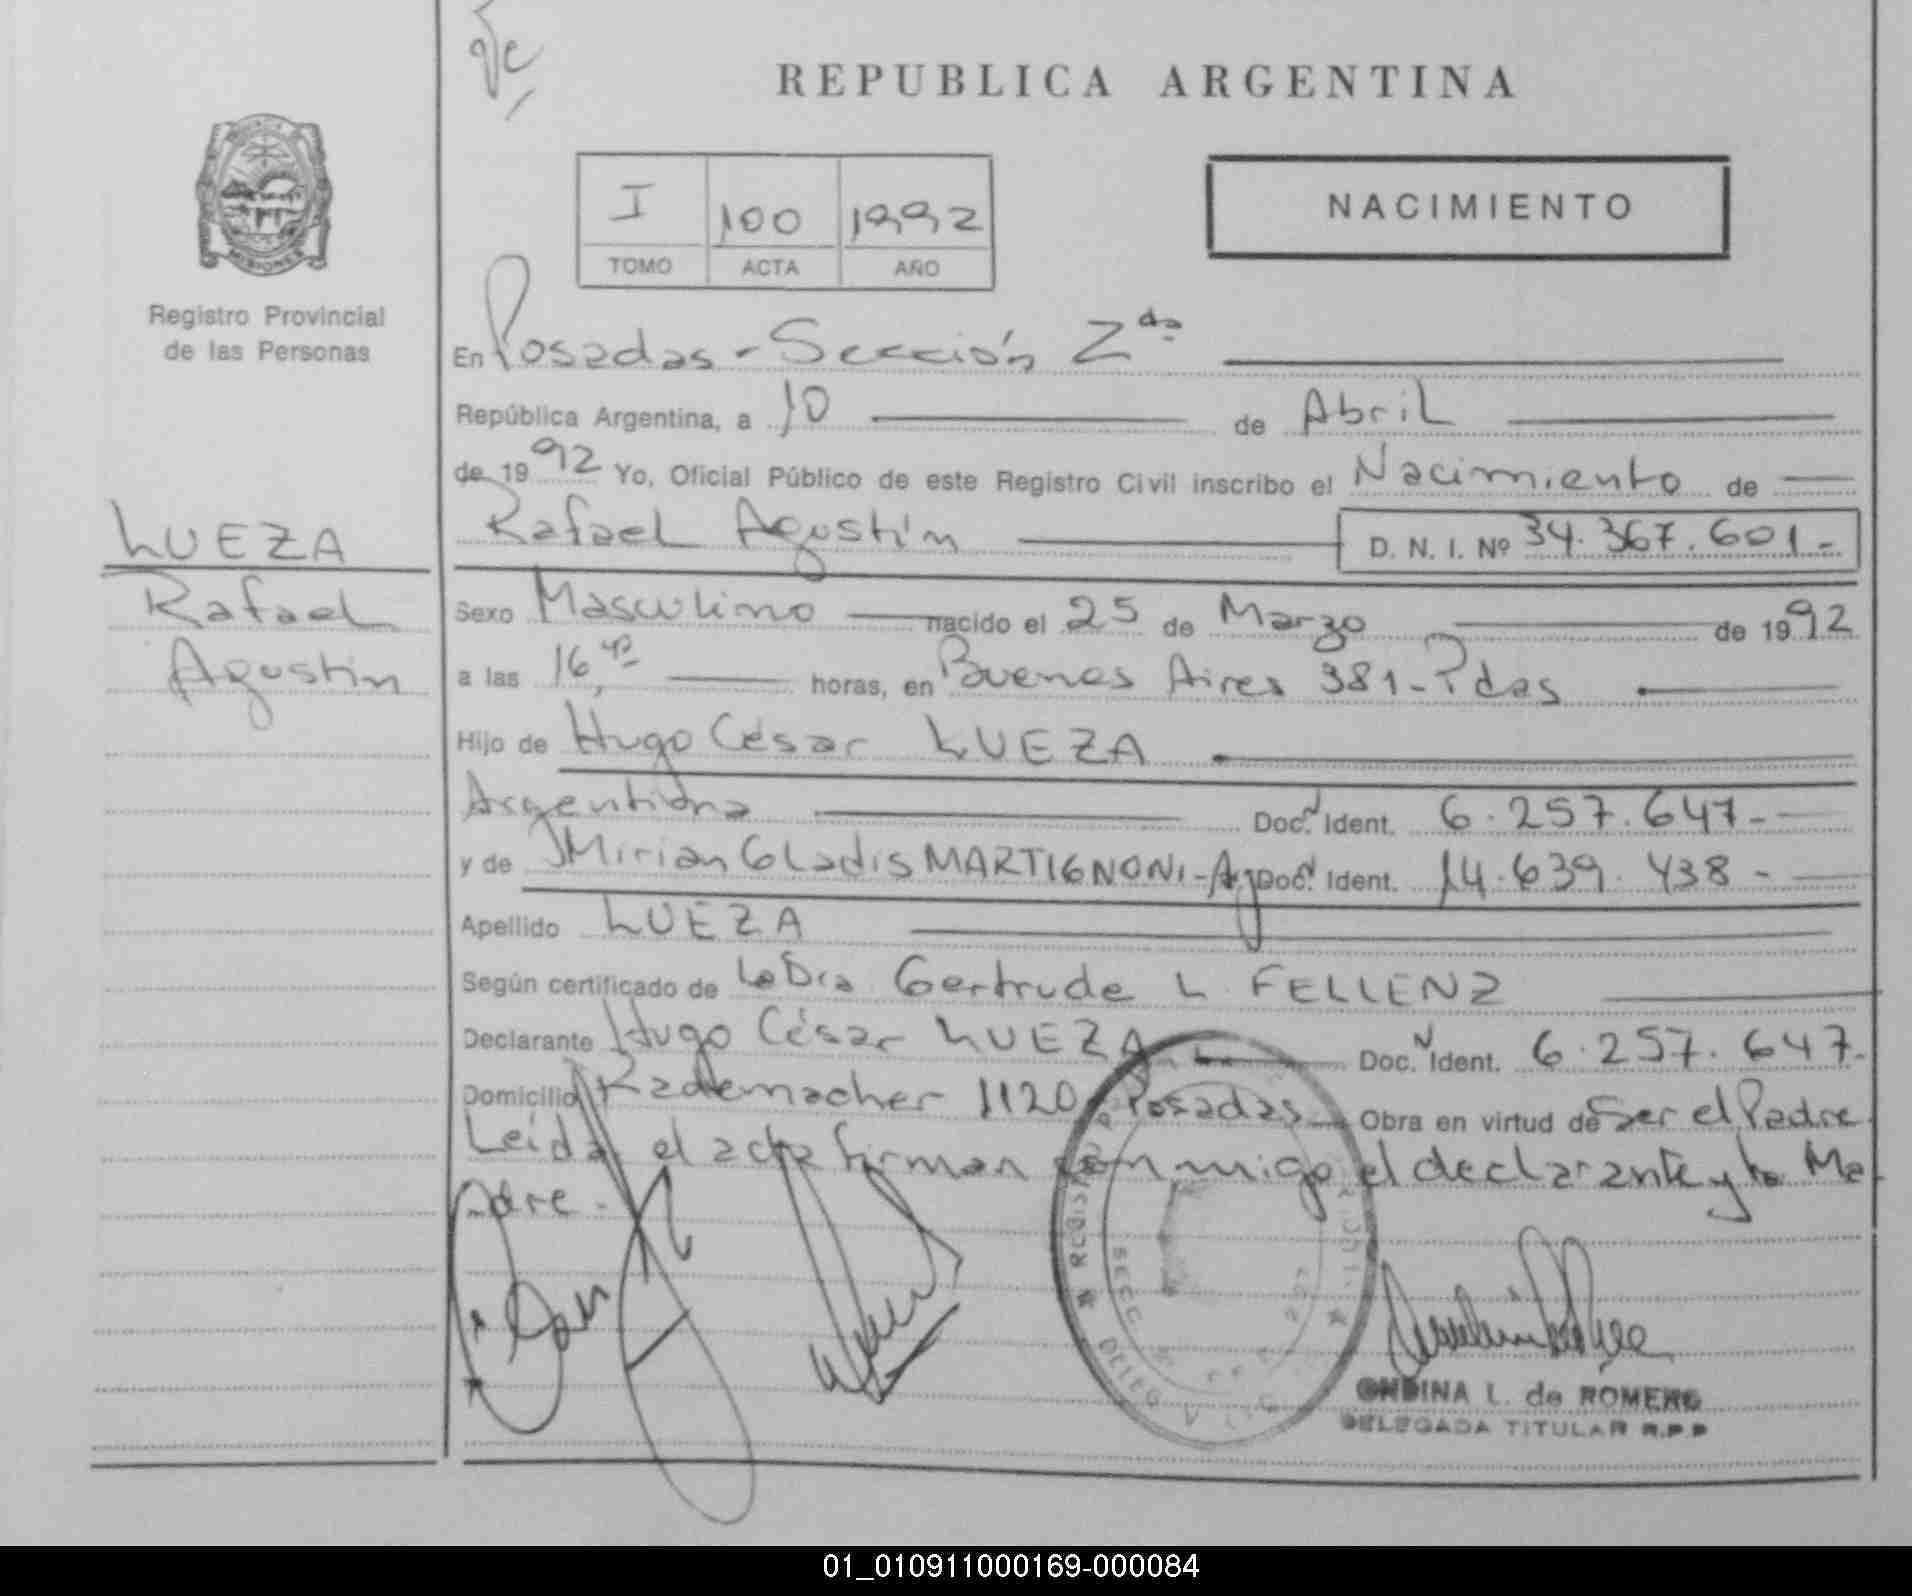 REPUBLICA ARGENTINA
MISIONES
Registro Provincial
de las Personas
I 100 1992
TOMO ACTA AÑO
NACIMIENTO
En Posadas - Sección 2da
República Argentina, a 10 de Abril
de 1992 Yo, Oficial Público de este Registro Civil inscribo el Nacimiento de
LUEZA
Rafael
Agustín
Rafael Agustín D. N. I. Nº 34.367.601.-
Sexo Masculino nacido el 25 de Marzo de 1992
a las 16, horas, en Buenos Aires 381 - Pdas
Hijo de Hugo César LUEZA
Argentina Doc. Ident. 6.257.647-
y de Mirian Gladis MARTIGNONI - Arg Doc. Ident. 14.639.438-
Apellido LUEZA
Según certificado de La Dra Gertrude L. FELLENZ
Declarante Hugo César LUEZA Doc. Ident. 6.257.647-
Domicilio Rademacher 1120 Posadas Obra en virtud de Ser el Padre
Leída el acta firman conmigo el declarante y la Ma-
dre.-
ONDINA L. de ROMERO
DELEGADA TITULAR R.P.P
01_010911000169-000084